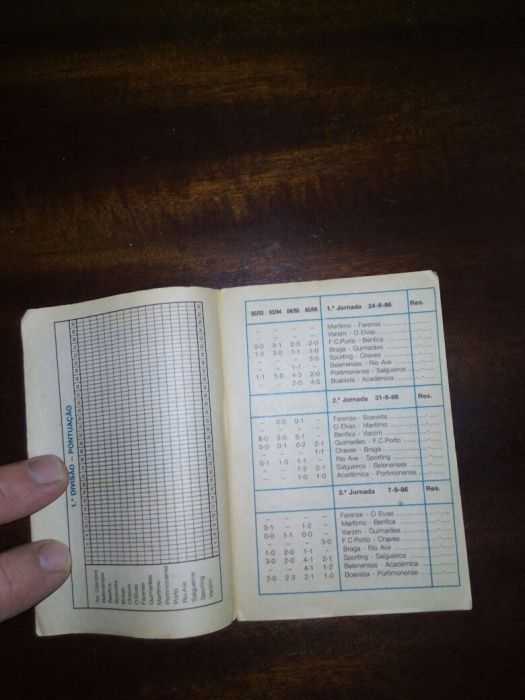 1.ª DIVISÃO - PONTUAÇÃO
Ac. Coimbra
Belenenses
Benfica
Boavista
Braga
Chaves
O Elvas
Farense
Guimarães
Marítimo
Portimonense
Porto
Rio Ave
Salgueiros
Sporting
Varzim
82/83 83/84 84/85 85/86 1.ª Jornada 24-8-86 Res.
Marítimo - Farense
Varzim - O Elvas
0-0 3-1 2-0 2-0 F.C.Porto - Benfica
1-2 3-0 1-1 1-0 Braga - Guimarães
– – – 3-0 Sporting - Chaves
– – 1-1 – Belenenses - Rio Ave
1-1 1-0 4-3 2-0 Portimonense - Salgueiros
2-0 4-0 Boavista - Académica
2.ª Jornada 31-8-86 Res.
– 0-0 0-1 – Farense - Boavista
O Elvas - Marítimo
8-0 2-0 5-1 – Benfica - Varzim
0-0 0-1 0-2 2-1 Guimarães - F.C.Porto
– – – 1-1 Chaves - Braga
0-1 1-0 1-1 – Rio Ave - Sporting
– – 1-2 0-1 Salgueiros - Belenenses
1-0 1-0 Académica - Portimonense
3.ª Jornada 7-9-86 Res.
Farense - O Elvas
0-1 – 1-2 – Marítimo - Benfica
0-0 1-1 0-0 – Varzim - Guimarães
– – – 3-0 F.C.Porto - Chaves
1-0 2-0 1-1 – Braga - Rio Ave
3-0 2-0 4-1 2-1 Sporting - Salgueiros
4-1 1-2 Belenenses - Académica
2-0 2-3 2-1 1-0 Boavista - Portimonense